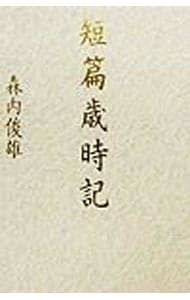 短篇歳時記
森内俊雄